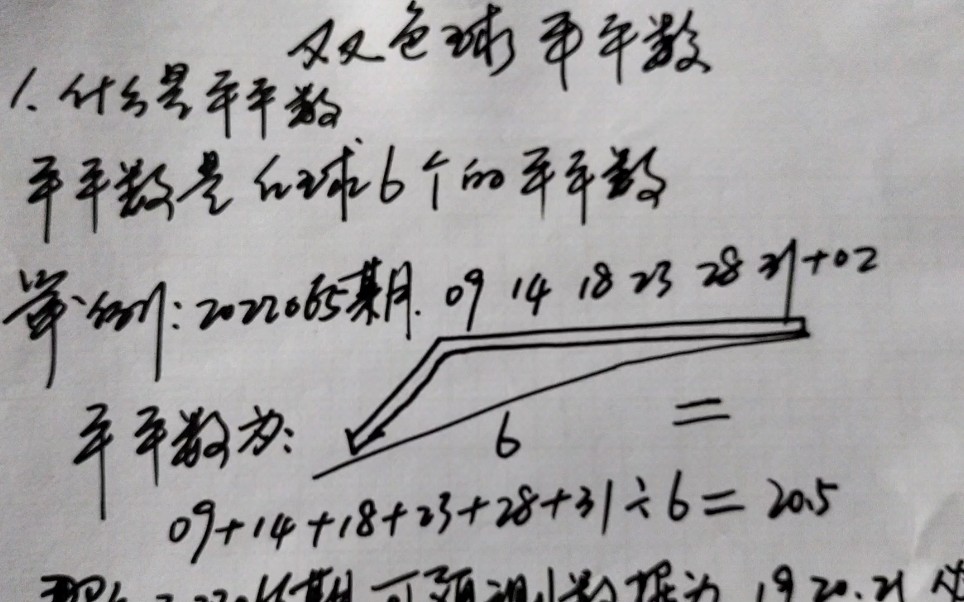 双色球平平数
1. 什么是平平数
平平数是红球6个的平平数
算例: 2022065期 09 14 18 23 28 31+02
平平数为:
6 =
09+14+18+23+28+31÷6=20.5
可预测数据为 19 20.21